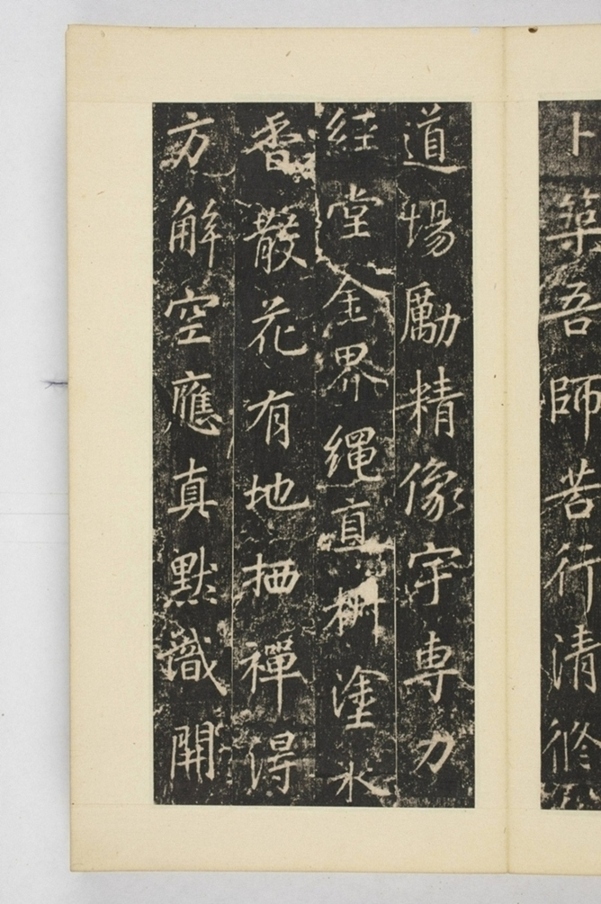 卜築吾師苦行清修
道場勵精像宇專力
經堂金界繩直㮛塗水
香散花有地栖禪得
方解空應真默識開